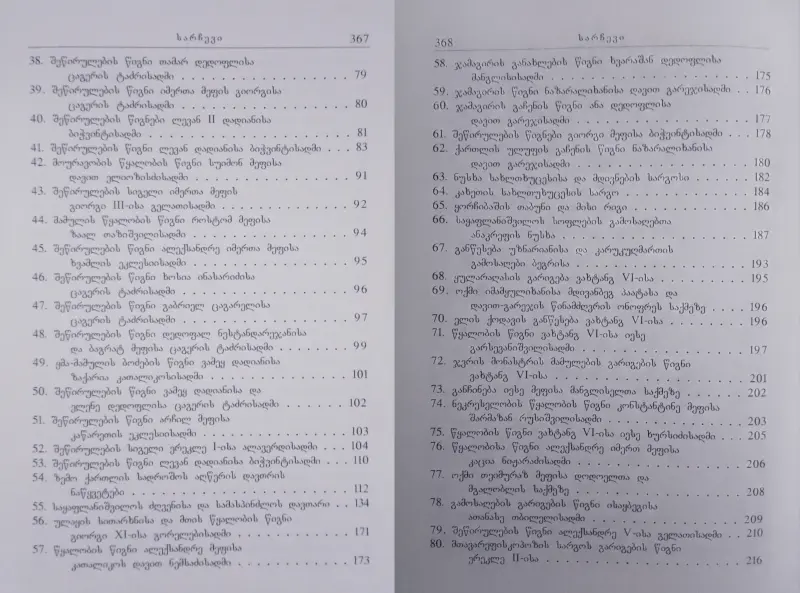 სარჩევი 367
38. შეწირულების წიგნი თამარ დედოფლისა
ცაგერის ტაძრისადმი . . . . . . . . . . . . . . . . . . 79
39. შეწირულების წიგნი იმერთა მეფის გიორგისა
ცაგერის ტაძრისადმი . . . . . . . . . . . . . . . . . . 80
40. შეწირულების წიგნები ლევან II დადიანისა
ბიჭვინტისადმი . . . . . . . . . . . . . . . . . . 81
41. შეწირულების წიგნი ლევან დადიანისა ბიჭვინტისადმი . . . 83
42. მოურავობის წყალობის წიგნი სუიმონ მეფისა
დავით ელიოზისძისადმი . . . . . . . . . . . . . . . 91
43. შეწირულების სიგელი იმერთა მეფის
გიორგი III-ისა გელათისადმი . . . . . . . . . . . . . 92
44. მამულის წყალობის წიგნი როსტომ მეფისა
ზაალ თაზიშვილისადმი . . . . . . . . . . . . . . . 94
45. შეწირულების წიგნი ალექსანდრე იმერთა მეფისა
ხვამლის ეკლესიისადმი . . . . . . . . . . . . . . . 95
46. შეწირულების წიგნი ხოსია ინასარიძისა
ცაგერის ტაძრისადმი . . . . . . . . . . . . . . . . 96
47. შეწირულების წიგნი გაბრიელ ცაგარელისა
ცაგერის ტაძრისადმი . . . . . . . . . . . . . . . . 97
48. შეწირულების წიგნი დედოფალ ნესტანდარეჯანისა
და ბაგრატ მეფისა ცაგერის ტაძრისადმი . . . . . . . 99
49. ყმა-მამულის ბოძების წიგნი ვამეყ დადიანისა
ზაქარია კათალიკოსისადმი . . . . . . . . . . . . . 101
50. შეწირულების წიგნი ვამეყ დადიანისა და
ელენე დედოფლისა ცაგერის ტაძრისადმი . . . . . . . 102
51. შეწირულების წიგნი არჩილ მეფისა
კაწარეთის ეკლესიისადმი . . . . . . . . . . . . . 103
52. შეწირულების სიგელი ერეკლე I-ისა ალავერდისადმი . . 104
53. შეწირულების წიგნი ლევან დადიანისა ბიჭვინტისადმი . . 110
54. ზემო ქართლის სადროშოს აღწერის დავთრის
ნაწყვეტები . . . . . . . . . . . . . . . . . . . 112
55. საყაფლანიშვილოს ძღვენისა და სამასპინძლოს დავთარი . . 134
56. ულაყის სითარხნისა და მთის წყალობის წიგნი
გიორგი XI-ისა გორელებისადმი . . . . . . . . . . 171
57. წყალობის წიგნი ალექსანდრე მეფისა
კათალიკოს დავით ნემსაძისადმი . . . . . . . . . . 173
368 სარჩევი
58. ჯამაგირის განახლების წიგნი ხვარაშან დედოფლისა
მანგლისისადმი . . . . . . . . . . . . . . . . . . 175
59. ჯამაგირის წიგნი ნაზარალიხანისა დავით გარეჯისადმი . . 176
60. ჯამაგირის გაჩენის წიგნი ანა დედოფლისა
დავით გარეჯისადმი . . . . . . . . . . . . . . . . 177
61. შეწირულების წიგნები გიორგი მეფისა ბიჭვინტისადმი . . . 178
62. ქართლის ულუფის გაჩენის წიგნი ნაზარალიხანისა
დავით გარეჯისადმი . . . . . . . . . . . . . . . . 180
63. ნუსხა სახლთუხუცესისა და მდივნების სარგოსი . . . . . 182
64. კახეთის სახლთუხუცესის სარგო . . . . . . . . . . . 184
65. ყორჩიბაშის თაბუნი და მისი რიგი . . . . . . . . . . 186
66. საყაფლანიშვილოს სოფლების გამოსაღებთა
ანაკრეფის ნუსხა . . . . . . . . . . . . . . . . . 187
67. განწესება უზნარიანისა და კარუკუღმართის
გამოსაღები ბეგრისა . . . . . . . . . . . . . . . . 193
68. ყულარაღასის გარიგება ვახტანგ VI-ისა . . . . . . . . 195
69. ოქმი იმამყულიხანისა მდივანბეგ პაატასა და
დავით-გარეჯის წინამძღვრის ონოფრეს საქმეზე . . . . . 196
70. ელის ქოდავის განწესება ვახტანგ VI-ისა . . . . . . . 196
71. წყალობის წიგნი ვახტანგ VI-ისა იესე
გარსევანიშვილისადმი . . . . . . . . . . . . . . . . 197
72. ჯვრის მონასტრის მამულების გარიგების წიგნი
ვახტანგ VI-ისა . . . . . . . . . . . . . . . . . . 201
73. განჩინება იესე მეფისა მანგლისელთა საქმეზე . . . . . . 202
74. ნეკრესელობის წყალობის წიგნი კონსტანტინე მეფისა
შარმაზან რუსიშვილისადმი . . . . . . . . . . . . . . 203
75. წყალობის წიგნი ვახტანგ VI-ისა იესე ხურსიძისადმი . . . 205
76. წყალობისა წიგნი ალექსანდრე იმერთ მეფისა
კაცია ნიჟარაძისადმი . . . . . . . . . . . . . . . 206
77. ოქმი თეიმურაზ მეფისა დოდოელთა და
მგალობლის საქმეზე . . . . . . . . . . . . . . . . 208
78. გამოსაღების გარიგების წიგნი ისაყბეგისა
ათანასე თბილელისადმი . . . . . . . . . . . . . . 209
79. შეწირულების წიგნი ალექსანდრე V-ისა გელათისადმი . . 210
80. მთავარეპისკოპოზის სარგოს გარიგების წიგნი
ერეკლე II-ისა . . . . . . . . . . . . . . . . . . 216